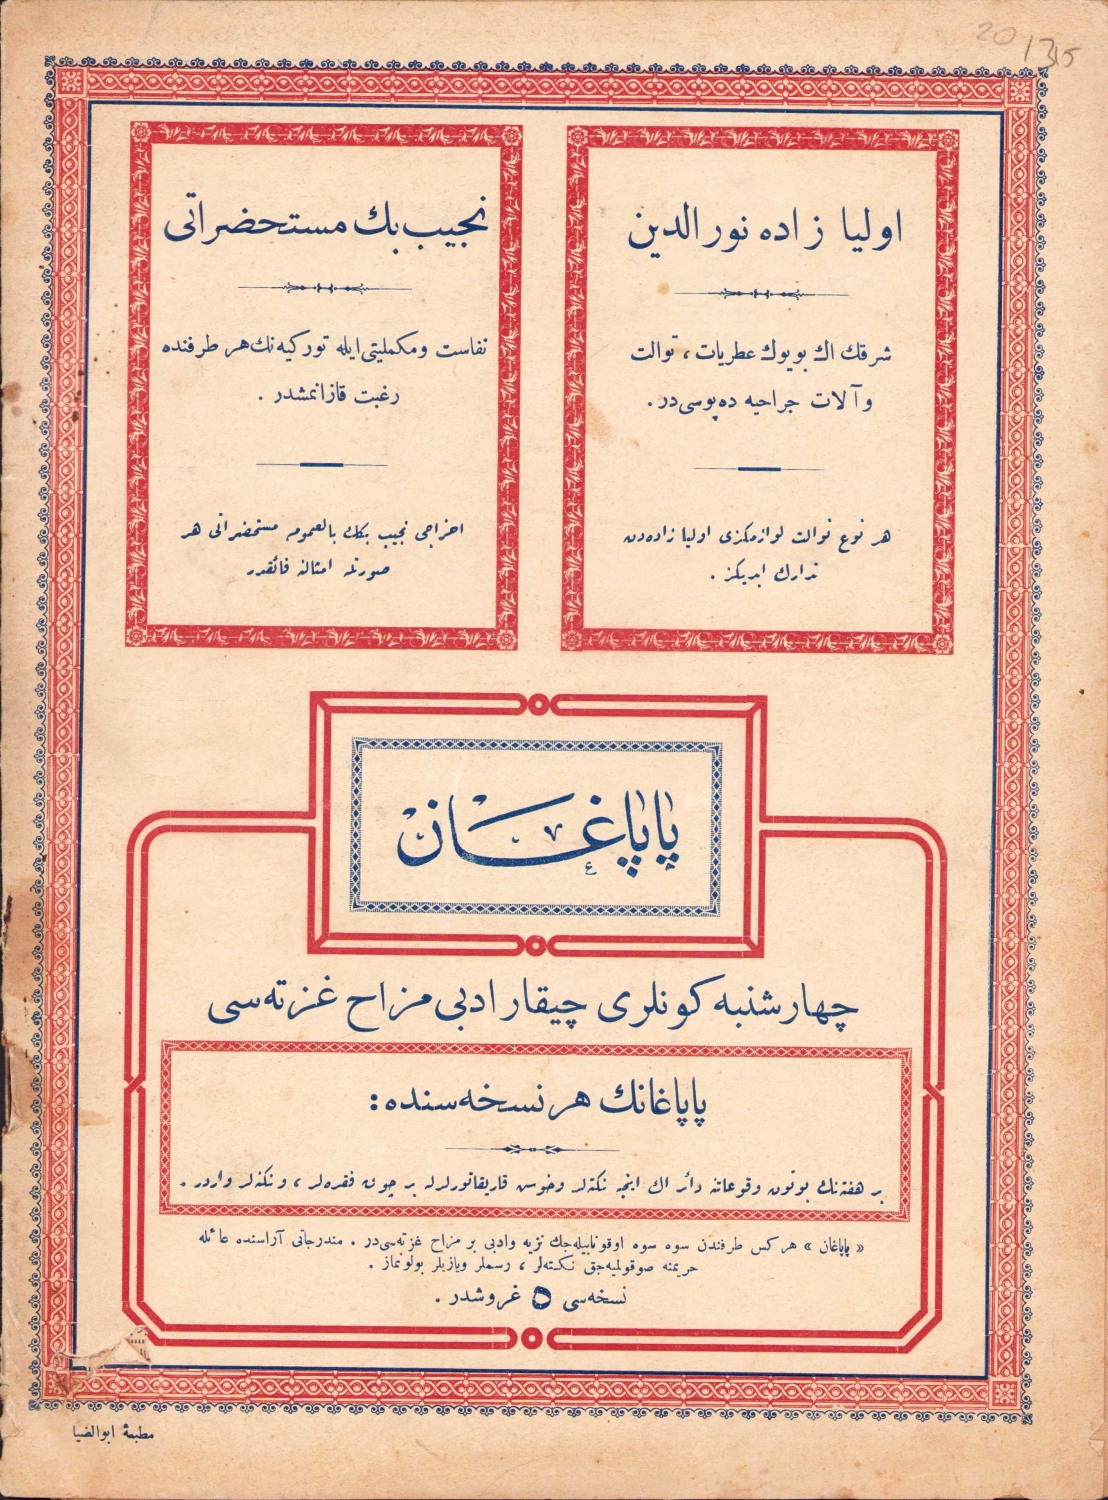 20 1315
اوليا زاده نور الدين
شرقك اڭ بويوك عطريات ، توالت
و آلات جراحيه ده‌پوسی‌در .
هر نوع توالت لوازمكزی اوليا زاده‌دن
تدارك ايديكز .
نجيب بك مستحضراتی
نفاست ومكمليتی ايله توركيه‌نك هر طرفنده
رغبت قازانمشدر .
نجيب بكك بالعموم مستحضراتی هر
صورتله امثالنه فائقدر
پاپاغان
چهارشنبه كونلری چيقار ادبی مزاح غزته‌سی
پاپاغانك هر نسخه‌سنده :
بر هفته‌نك بوتون وقوعاتنه دائر اڭ اينجه نكته‌لر وخوش قاريقاتورلرله بر چوق فقره‌لر ، ونكته‌لر واردر .
« پاپاغان » هركس طرفندن سوه سوه اوقونابيله‌جك نزيه وادبی بر مزاح غزته‌سی‌در . مندرجاتی آراسنده عائله
حريمنه صوقولميه‌جق نكته‌لر ، رسملر ويازيلر بولونماز .
نسخه‌سی ٥ غروشدر .
مطبعهٔ ابوالضيا